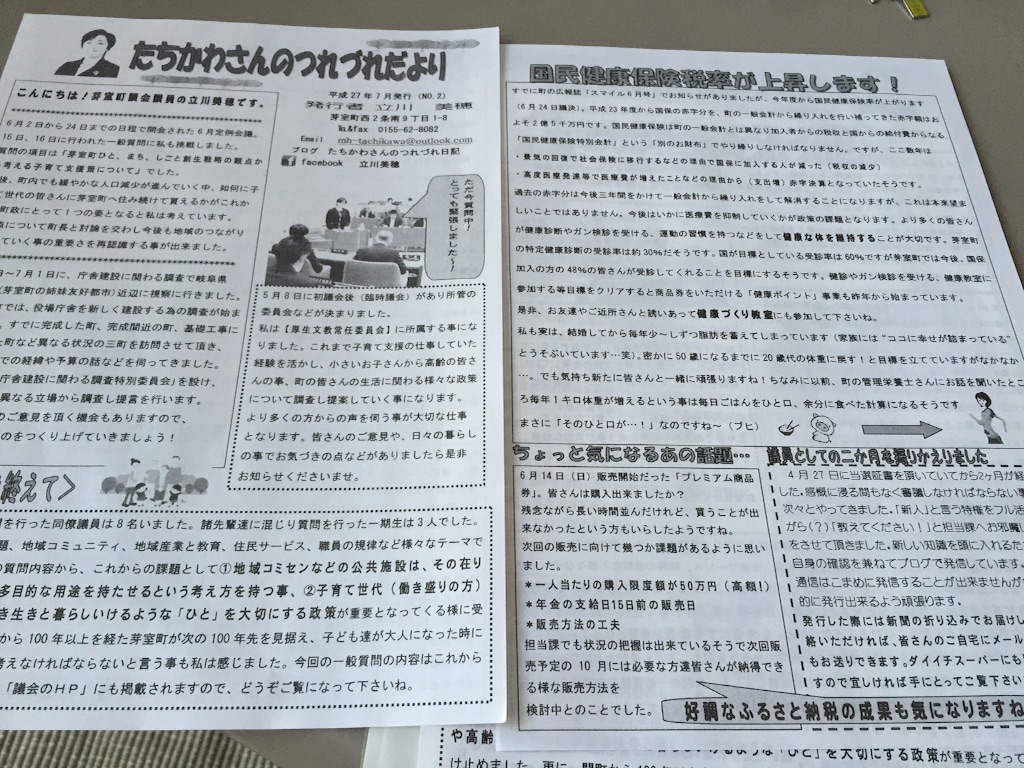 たちかわさんのつれづれだより
平成27年7月発行(NO.2)
発行者 立川 美穂
芽室町西2条南9丁目1-8
℡&fax 0155-62-8082
Email mh-tachikawa@outlook.com
ブログ たちかわさんのつれづれ日記
facebook 立川美穂
こんにちは！芽室町議会議員の立川美穂です。
6月2日から24日までの日程で開会された6月定例会議。
15日、16日に行われた一般質問に私も挑戦しました。
質問の項目は「芽室町ひと、まち、しごと創生戦略の観点か
考える子育て支援策について」でした。
後、町内でも緩やかな人口減少が進んでいく中、如何に子
て世代の皆さんに芽室町へ住み続けて貰えるかがこれか
町政にとって1つの要となると私は考えています。
点について町長と討論を交わし今後も地域のつながり
ていく事の重要さを再認識する事が出来ました。
ただ今質問中！
とっても緊張しました～～
日～7月1日に、庁舎建設に関わる調査で岐阜県
(芽室町の姉妹友好都市)近辺に視察に行きました。
では、役場庁舎を新しく建設する為の調査が始ま
。すでに完成した町、完成間近の町、基礎工事に
た町など異なる状況の三町を訪問させて頂き、
での経緯や予算の話などを伺ってきました。
庁舎建設に関わる調査特別委員会」を設け、
異なる立場から調査し提言を行います。
のご意見を頂く機会もありますので、
のをつくり上げていきましょう！
5月8日に初議会後(臨時議会)があり所管の
委員会などが決まりました。
私は【厚生文教常任委員会】に所属する事にな
りました。これまで子育て支援の仕事していた
経験を活かし、小さいお子さんから高齢の皆さ
んの事、町の皆さんの生活に関わる様々な政策
について調査し提案していく事になります。
より多くの方からの声を伺う事が大切な仕事
となります。皆さんのご意見や、日々の暮らし
の事でお気づきの点などがありましたら是非
お知らせくださいませ。
終えて＞
を行った同僚議員は8名いました。諸先輩達に混じり質問を行った一期生は3人でした。
題、地域コミュニティ、地域産業と教育、住民サービス、職員の規律など様々なテーマで
の質問内容から、これからの課題として①地域コミセンなどの公共施設は、その在り
多目的な用途を持たせるという考え方を持つ事、②子育て世代(働き盛りの方)
き生きと暮らしいけるような「ひと」を大切にする政策が重要となってくる様に受
から100年以上を経た芽室町が次の100年先を見据え、子ども達が大人になった時に
考えなければならないと言う事も私は感じました。今回の一般質問の内容はこれから
「議会のHP」にも掲載されますので、どうぞご覧になって下さいね。
国民健康保険税率が上昇します！
すでに町の広報誌「スマイル6月号」でお知らせがありましたが、今年度から国民健康保険率が上がります
(6月24日議決)。平成23年度から国保の赤字分を、町の一般会計から繰り入れを行い補ってきた赤字帳はお
よそ2億5千万円です。国民健康保険は町の一般会計とは異なり加入者からの税収と国からの給付費からなる
「国民健康保険特別会計」という「別のお財布」でやり繰りしなければなりません。ですが、ここ数年は
・景気の回復で社会保険に移行するなどの理由で国保に加入する人が減った(税収の減少)
・高度医療発達等で医療費が増えたことなどの理由から(支出増)赤字決算となっていたそうです。
過去の赤字分は今後三年間をかけて一般会計から繰り入れをして解消することになりますが、これは本来望ま
しいことではありません。今後はいかに医療費を抑制していくかが政策の課題となります。より多くの皆さん
が健康診断やガン検診を受ける、運動の習慣を持つなどをして健康な体を維持することが大切です。芽室町
の特定健康診断の受診率は約30%だそうです。国が目標としている受診率は60%ですが芽室町では今後、国保
加入の方の48%の皆さんが受診してくれることを目標にするそうです。健診やガン検診を受ける、健康教室に
参加する等目標をクリアすると商品券をいただける「健康ポイント」事業も昨年から始まっています。
是非、お友達やご近所さんと誘いあって健康づくり教室にも参加して下さいね。
私も実は、結婚してから毎年少～しずつ脂肪を蓄えてしまっています(家族には"ココに幸せが詰まっている"
とうそぶいています…笑)。密かに50歳になるまでに20歳代の体重に戻す！と目標を立てていますがなかなか
…。でも気持ち新たに皆さんと一緒に頑張りますね！ちなみに以前、町の管理栄養士さんにお話を聞いたとこ
ろ毎年1キロ体重が増えるという事は毎日ごはんをひと口、余分に食べた計算になるそうです
まさに「そのひと口が…！」なのですね～(ブヒ)
ちょっと気になるあの話題…
6月14日(日)販売開始だった「プレミアム商品
券」。皆さんは購入出来ましたか？
残念ながら長い時間並んだけれど、買うことが出
来なかったという方もいらしたようですね。
次回の販売に向けて幾つか課題があるように思い
ました。
*一人当たりの購入限度額が50万円(高額！)
*年金の支給日15日前の販売日
*販売方法の工夫
担当課でも状況の把握は出来ているそうで次回販
売予定の10月には必要な方達皆さんが納得でき
る様な販売方法を
検討中とのことでした。
好調なふるさと納税の成果も気になりますね
議員としての二か月を振りかえりました
4月27日に当選証書を頂いていてから2ヶ月が経
した。感慨に浸る間もなく審議しなければならない事
次々とやってきました。「新人」と言う特権をフル活
がら(？)「教えてください！」と担当課へお邪魔し
をさせて頂きました。新しい知識を頭に入れるため
自身の確認を兼ねてブログで発信しています。
通信はこまめに発信することが出来ませんが
的に発行出来るよう頑張ります。
発行した際には新聞の折り込みでお届けし
絡いただければ、皆さんのご自宅にメール
もお送りできます。ダイイチスーパーにも
すので宜しければ手にとってご覧下さい
や高齢
るような「ひと」を大切にする政策が重要となって
け止めました。更に、開町から100年